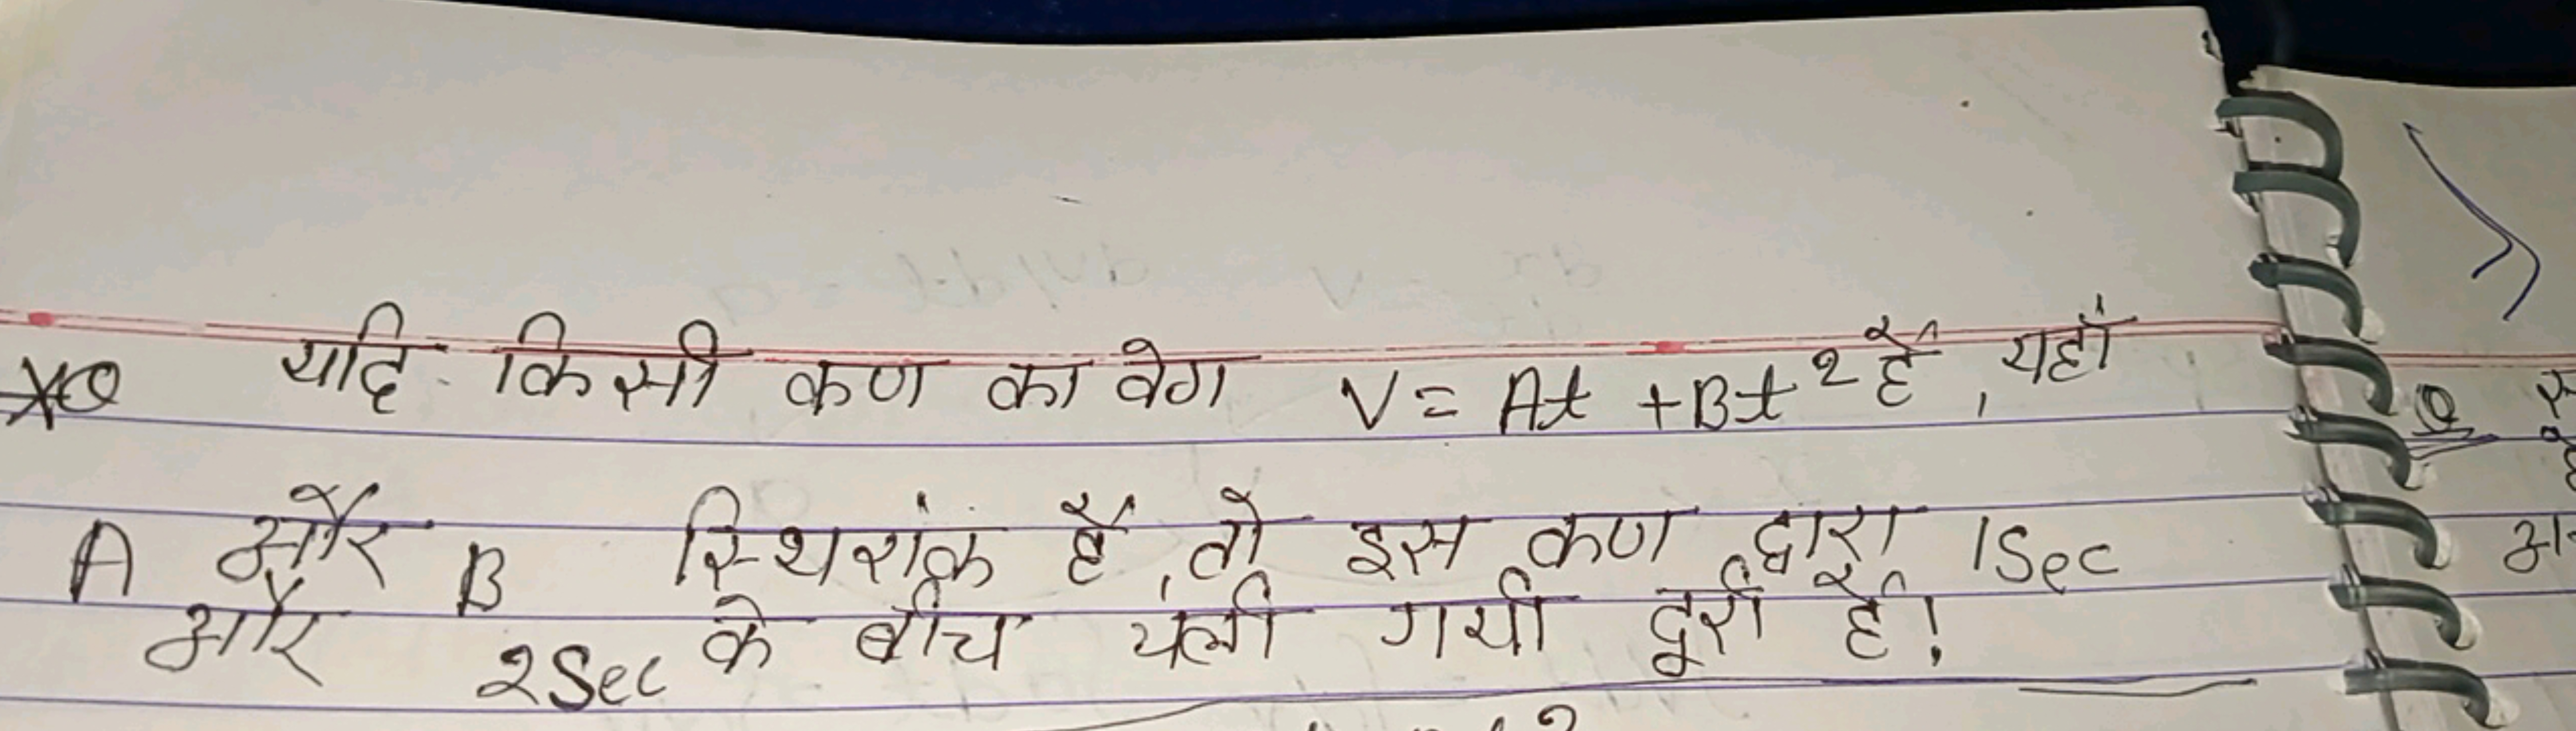 Q यदि किसी कण का वेग V = At + Bt² हैं, यहाँ
A और B स्थिरांक हैं, तो इस कण द्वारा 1Sec
और 2Sec के बीच चली गयी दूरी हैं!
Q